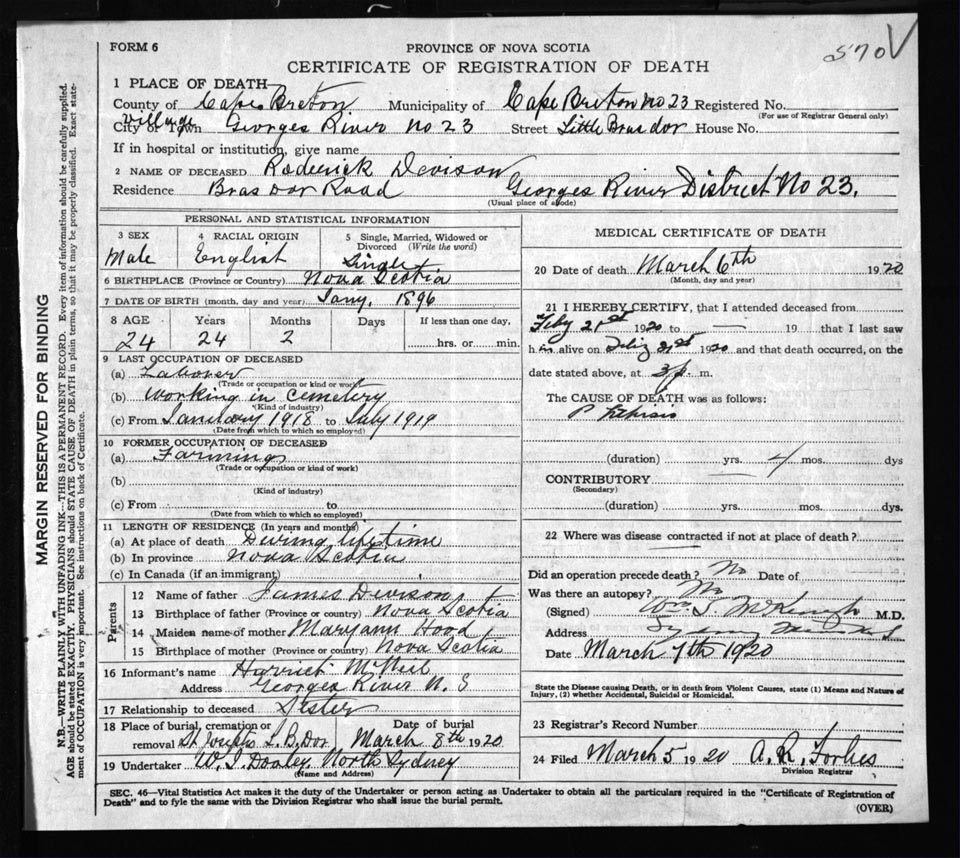 FORM 6
PROVINCE OF NOVA SCOTIA
570 V
CERTIFICATE OF REGISTRATION OF DEATH
1 PLACE OF DEATH
County of Cape Breton Municipality of Cape Breton no 23 Registered No.
(For use of Registrar General only)
Village
City or Town Georges River no 23 Street Little Bras dor House No.
If in hospital or institution, give name
2 NAME OF DECEASED Roderick Devison
Residence Bras Dor Road Georges River District No 23.
(Usual place of abode)
PERSONAL AND STATISTICAL INFORMATION
3 SEX
Male
4 RACIAL ORIGIN
English
5 Single, Married, Widowed or
Divorced (Write the word)
Single
6 BIRTHPLACE (Province or Country) Nova Scotia
7 DATE OF BIRTH (month, day and year) Jany. 1896
8 AGE Years Months Days If less than one day,
24 24 2 hrs. or min.
9 LAST OCCUPATION OF DECEASED
(a) Laborer
(Trade or occupation or kind or work
(b) Working in Cemetery
(Kind of industry)
(c) From January 1918 to July 1919
(Date from which to which so employed)
10 FORMER OCCUPATION OF DECEASED
(a) Farming
(Trade or occupation or kind of work)
(b)
(Kind of industry)
(c) From to
(Date from which to which so employed)
11 LENGTH OF RESIDENCE (In years and months)
(a) At place of death During lifetime
(b) In province Nova Scotia
(c) In Canada (if an immigrant)
Parents
12 Name of father James Devison
13 Birthplace of father (Province or country) Nova Scotia
14 Maiden name of mother Maryann Hood
15 Birthplace of mother (Province or country) Nova Scotia
16 Informant's name Harriet McNeil
Address Georges River N. S
17 Relationship to deceased Sister
18 Place of burial, cremation or Date of burial
removal St Josephs L. B. Dor March 8th 1920
19 Undertaker W. J. Dooley North Sydney
(Name and Address)
MEDICAL CERTIFICATE OF DEATH
20 Date of death March 6th 1920
(Month, day and year)
21 I HEREBY CERTIFY, that I attended deceased from
Feby 21st 1920 to — 19 that I last saw
h im alive on 21st 1920 and that death occurred, on the
date stated above, at 3 p. m.
The CAUSE OF DEATH was as follows:
Phthisis
(duration) yrs. 4 mos. dys
CONTRIBUTORY
(Secondary)
(duration) yrs. mos. dys.
22 Where was disease contracted if not at place of death?
Did an operation precede death? No Date of
Was there an autopsy? No
(Signed) Wm. J. McKeough M.D.
Address Sydney Mines
Date March 7th 1920
State the Disease causing Death, or in death from Violent Causes, state (1) Means and Nature of
Injury, (2) whether Accidental, Suicidal or Homicidal.
23 Registrar's Record Number
24 Filed March 5 1920 A. R. Forbes
Division Registrar
SEC. 46—Vital Statistics Act makes it the duty of the Undertaker or person acting as Undertaker to obtain all the particulars required in the "Certificate of Registration of
Death" and to fyle the same with the Division Registrar who shall issue the burial permit.
(OVER)
MARGIN RESERVED FOR BINDING
N.B.—WRITE PLAINLY WITH UNFADING INK—THIS IS A PERMANENT RECORD. Every item of information should be carefully supplied.
AGE should be stated EXACTLY. PHYSICIANS should STATE CAUSE OF DEATH in plain terms, so that it may be properly classified. Exact state-
ment of OCCUPATION is very important. See instructions on back of Certificate.